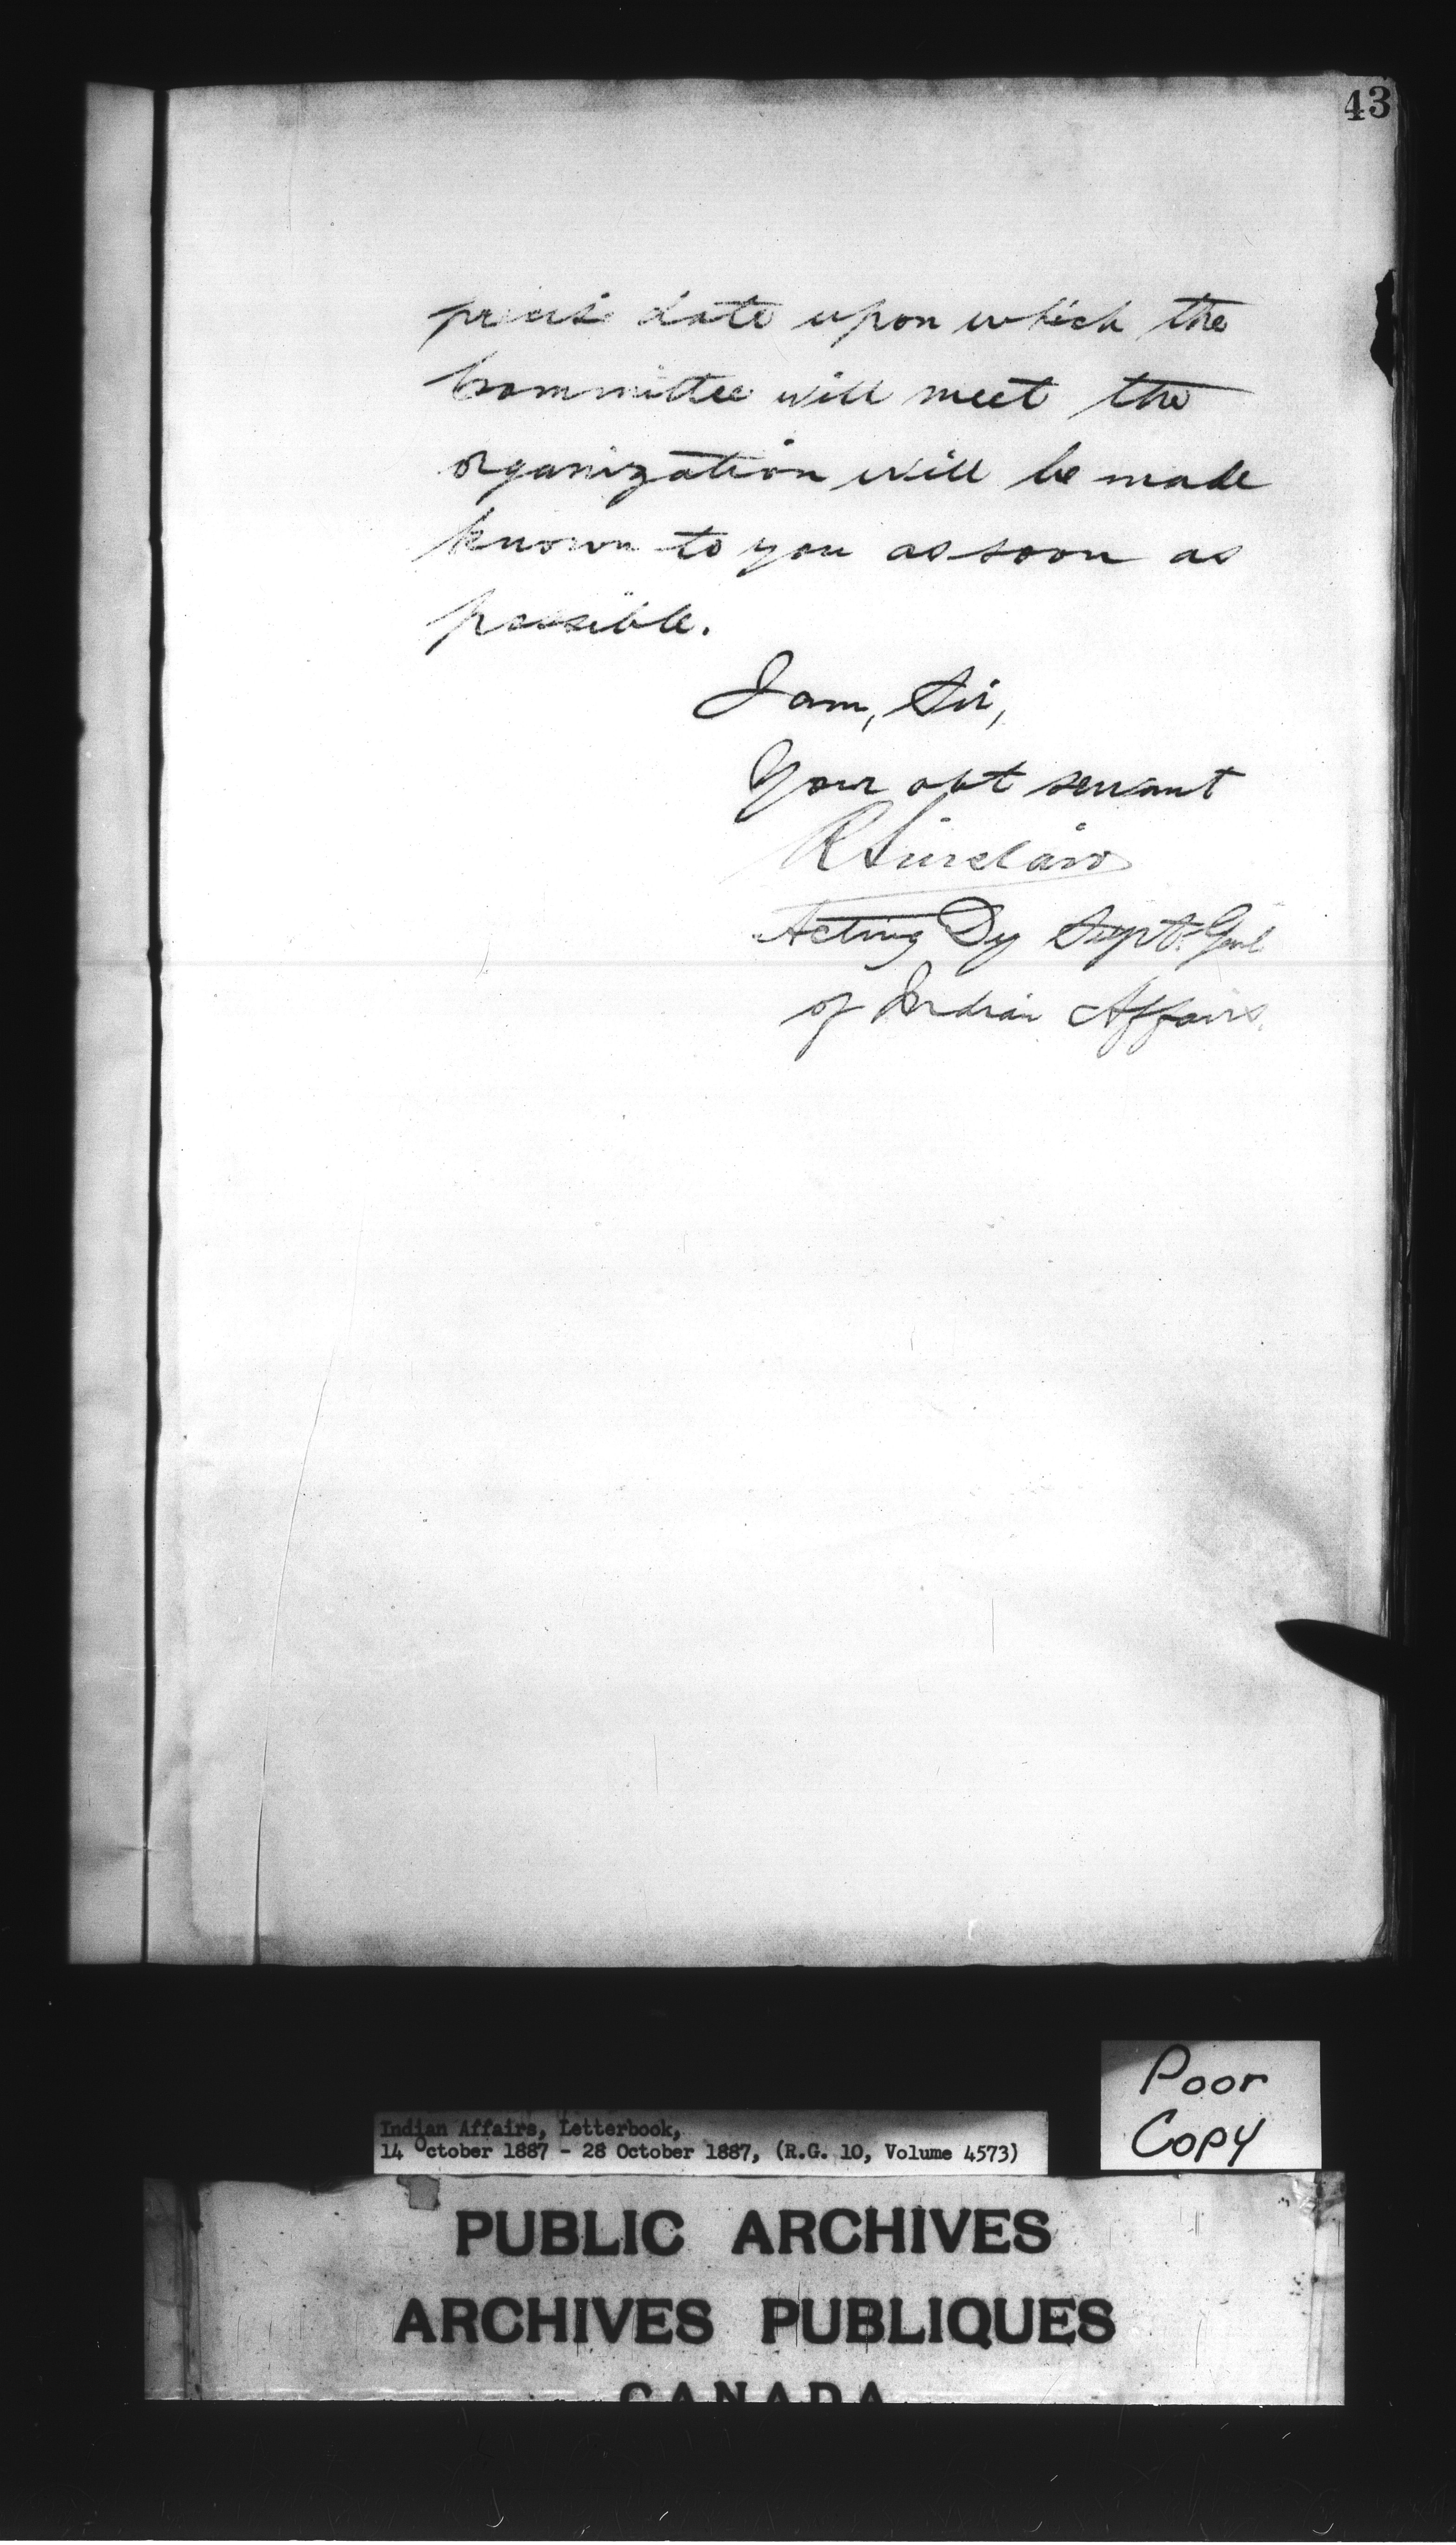 43
precise date upon which the
Committee will meet the
organization will be made
known to you as soon as
possible.
I am, Sir,
Your obt servant
R Sinclair
Acting Dy Supt. Genl
of Indian Affairs.
Poor
Copy
Indian Affairs, Letterbook,
14 October 1887 - 28 October 1887, (R.G. 10, Volume 4573)
PUBLIC ARCHIVES
ARCHIVES PUBLIQUES
CANADA